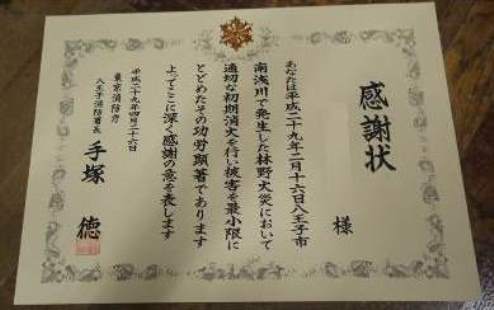 感謝状
様
あなたは平成二十九年二月十六日八王子市
南浅川で発生した林野火災において
適切な初期消火を行い被害を最小限に
とどめたその功労顕著であります
よってここに深く感謝の意を表します
平成二十九年四月二十六日
東京消防庁
八王子消防署長 手塚 徳